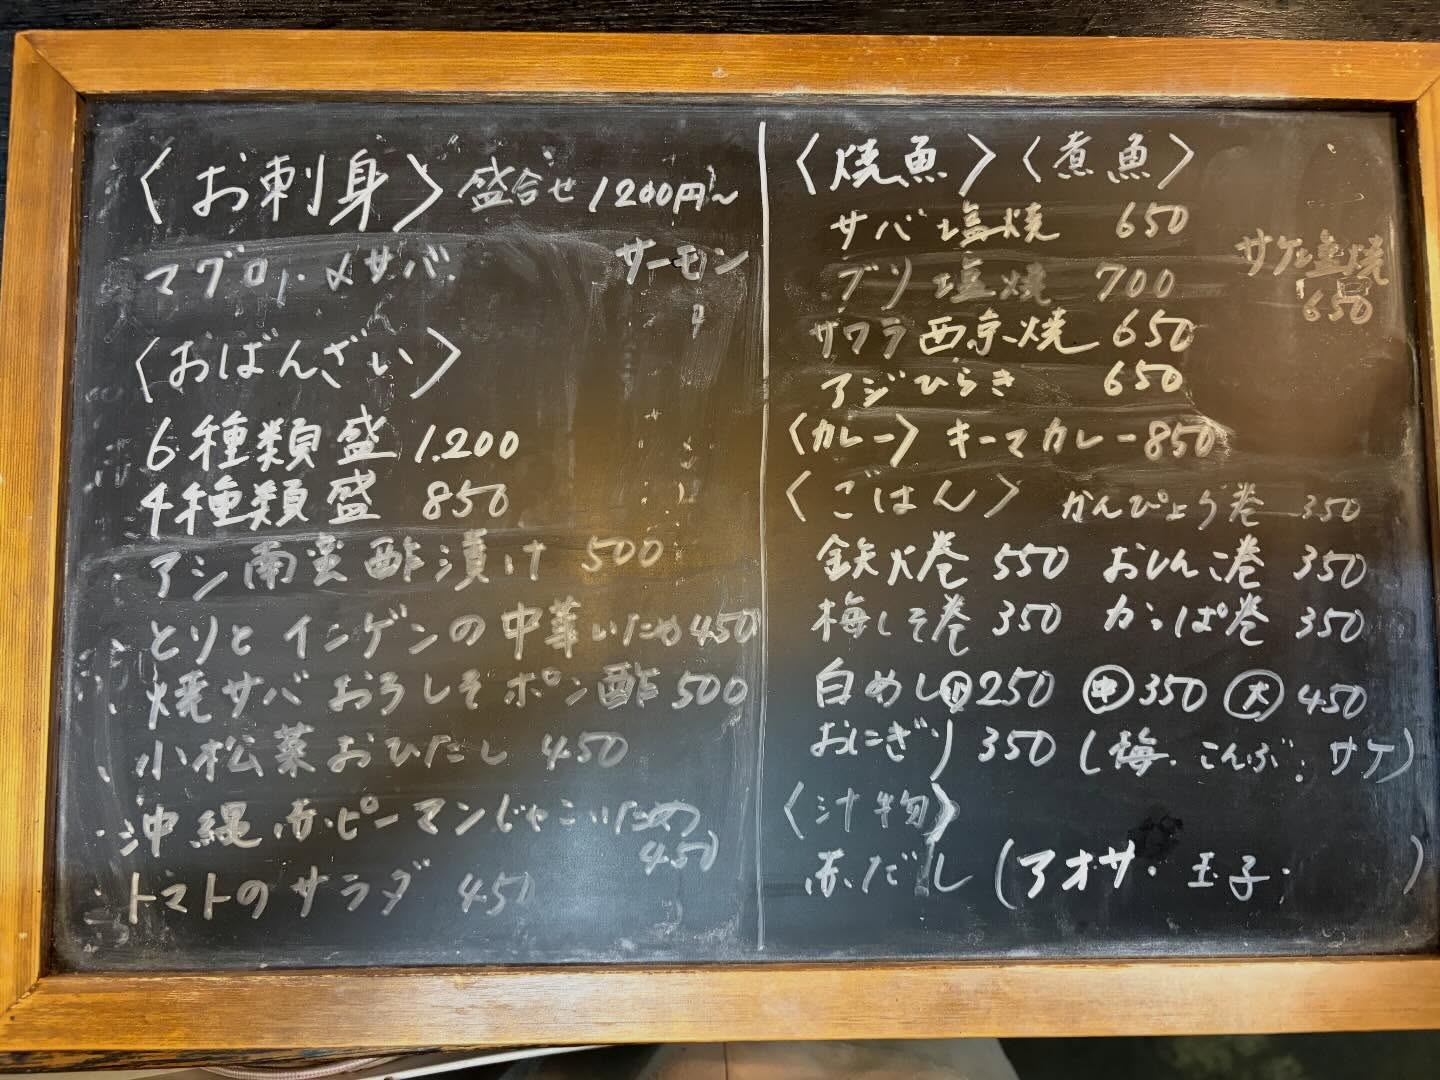 〈お刺身〉盛合せ 1200円〜
マグロ,・〆サバ サーモン
〈おばんざい〉
6種類盛 1.200
4種類盛 850
アジ南蛮酢漬け 500
とりとインゲンの中華いため 450
焼サバおろしそポン酢 500
小松菜おひたし 450
沖縄赤ピーマンじゃこいため
450
トマトのサラダ 450
〈焼魚〉〈煮魚〉
サバ塩焼 650
ブリ塩焼 700
サケ塩焼
650
サワラ西京焼 650
アジひらき 650
〈カレー〉 キーマカレー 850
〈ごはん〉 かんぴょう巻 350
鉄火巻 550 おしんこ巻 350
梅しそ巻 350 カッぱ巻 350
白めし㊙小 250 ㊥ 350 大 450
おにぎり 350 (梅・こんぶ・サケ)
〈汁物〉
赤だし (アオサ・玉子・ )